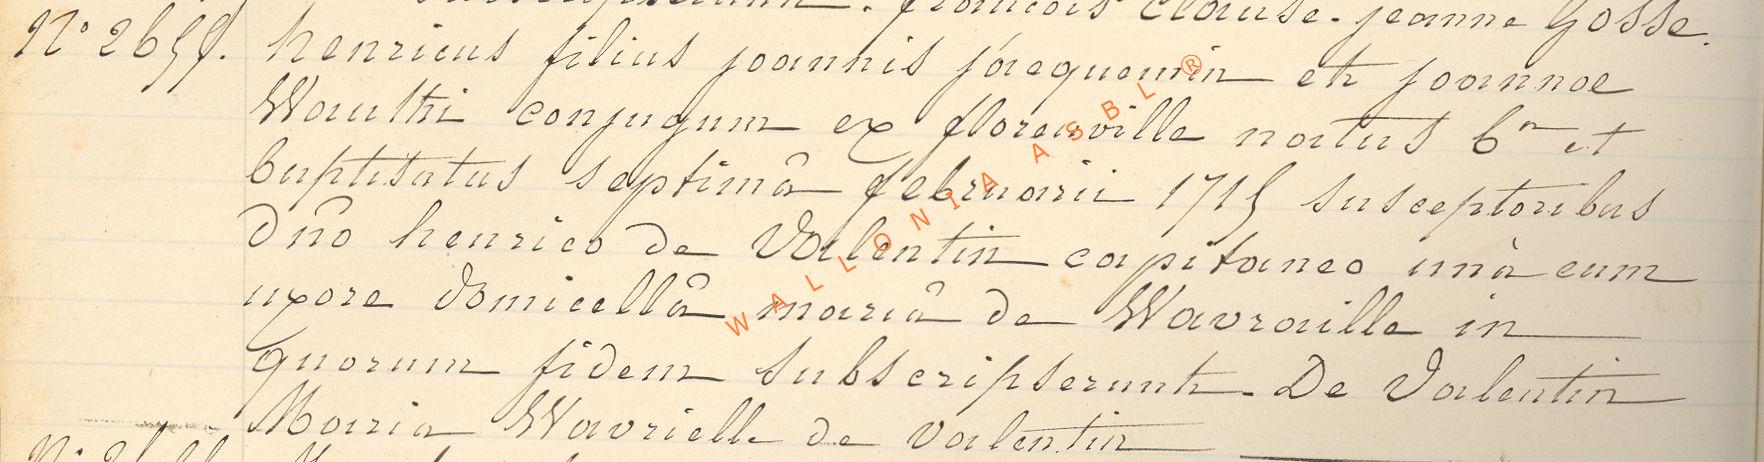 francois Clause. jeanne Gosse.
N° 2659. henricus filius joannis jacquemin et joannae
Wauthi conjugum ex florenville natus 6ᵃ et
baptisatus septimâ februarii 1715 susceptoribus
Dno henrico de Valentin capitaneo unâ cum
uxore domicellâ mariâ de Wavraille in
quorum fidem subscripserunt. De Valentin
Maria Wavrielle de valentin
WALLONIA ASBL ®